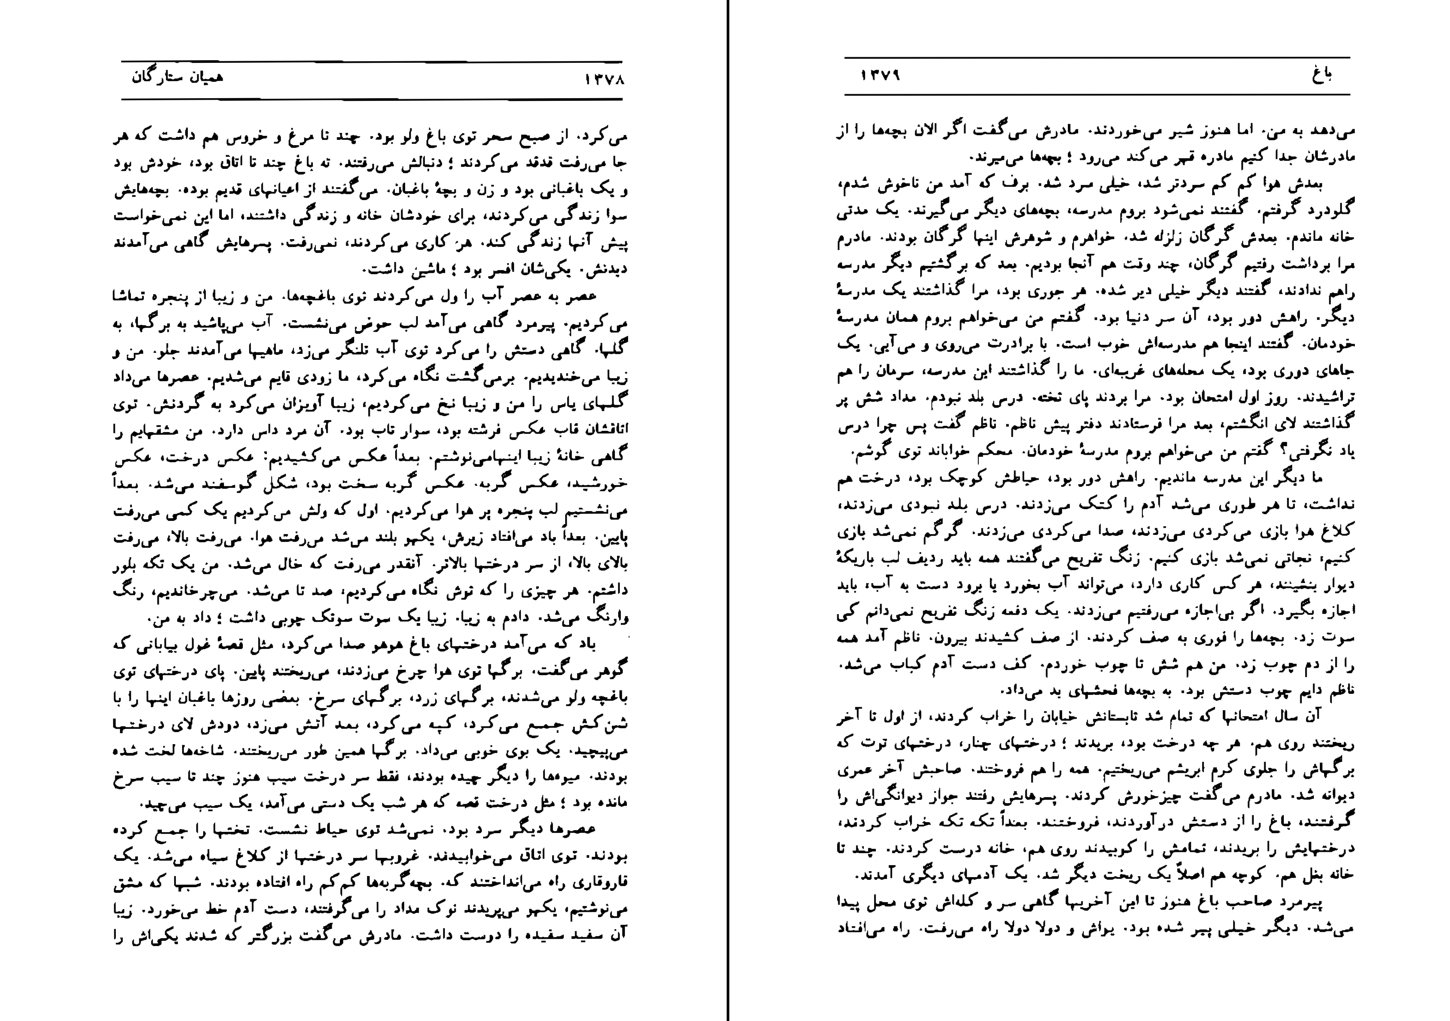 ۱۳۷۸ همیان ستارگان
می‌کرد. از صبح سحر توی باغ ولو بود. چند تا مرغ و خروس هم داشت که هر
جا می‌رفت قدقد می‌کردند ؛ دنبالش می‌رفتند. ته باغ چند تا اتاق بود، خودش بود
و یک باغبانی بود و زن و بچهٔ باغبان. می‌گفتند از اعیانهای قدیم بوده. بچه‌هایش
سوا زندگی می‌کردند، برای خودشان خانه و زندگی داشتند، اما این نمی‌خواست
پیش آنها زندگی کند. هر کاری می‌کردند، نمی‌رفت. پسرهایش گاهی می‌آمدند
دیدنش. یکی‌شان افسر بود ؛ ماشین داشت.
عصر به عصر آب را ول می‌کردند توی باغچه‌ها. من و زیبا از پنجره تماشا
می‌کردیم. پیرمرد گاهی می‌آمد لب حوض می‌نشست. آب می‌پاشید به برگها، به
گلها. گاهی دستش را می‌کرد توی آب تلنگر می‌زد، ماهیها می‌آمدند جلو. من و
زیبا می‌خندیدیم. برمی‌گشت نگاه می‌کرد، ما زودی قایم می‌شدیم. عصرها می‌داد
گلهای یاس را من و زیبا نخ می‌کردیم، زیبا آویزان می‌کرد به گردنش. توی
اتاقشان قاب عکس فرشته بود، سوار تاب بود. آن مرد داس دارد. من مشقهایم را
گاهی خانهٔ زیبا اینهامی‌نوشتم. بعداً عکس می‌کشیدیم: عکس درخت، عکس
خورشید، عکس گربه. عکس گربه سخت بود، شکل گوسفند می‌شد. بعداً
می‌نشستیم لب پنجره پر هوا می‌کردیم. اول که ولش می‌کردیم یک کمی می‌رفت
پایین. بعداً باد می‌افتاد زیرش، یکهو بلند می‌شد می‌رفت هوا. می‌رفت بالا، می‌رفت
بالای بالا، از سر درختها بالاتر. آنقدر می‌رفت که خال می‌شد. من یک تکه بلور
داشتم. هر چیزی را که توش نگاه می‌کردیم، صد تا می‌شد. می‌چرخاندیم، رنگ
وارنگ می‌شد. دادم به زیبا. زیبا یک سوت سوتک چوبی داشت ؛ داد به من.
باد که می‌آمد درختهای باغ هوهو صدا می‌کرد، مثل قصهٔ غول بیابانی که
گوهر می‌گفت. برگها توی هوا چرخ می‌زدند، می‌ریختند پایین. پای درختهای توی
باغچه ولو می‌شدند، برگهای زرد، برگهای سرخ. بعضی روزها باغبان اینها را با
شن‌کش جمع می‌کرد، کپه می‌کرد، بعد آتش می‌زد، دودش لای درختها
می‌پیچید. یک بوی خوبی می‌داد. برگها همین طور می‌ریختند. شاخه‌ها لخت شده
بودند. میوه‌ها را دیگر چیده بودند، فقط سر درخت سیب هنوز چند تا سیب سرخ
مانده بود ؛ مثل درخت قصه که هر شب یک دستی می‌آمد، یک سیب می‌چید.
عصرها دیگر سرد بود. نمی‌شد توی حیاط نشست. تختها را جمع کرده
بودند. توی اتاق می‌خوابیدند. غروبها سر درختها از کلاغ سیاه می‌شد. یک
قاروقاری راه می‌انداختند که. بچه‌گربه‌ها کم‌کم راه افتاده بودند. شبها که مشق
می‌نوشتیم، یکهو می‌پریدند نوک مداد را می‌گرفتند، دست آدم خط می‌خورد. زیبا
آن سفید سفیده را دوست داشت. مادرش می‌گفت بزرگتر که شدند یکی‌اش را
باغ ۱۳۷۹
می‌دهد به من. اما هنوز شیر می‌خوردند. مادرش می‌گفت اگر الان بچه‌ها را از
مادرشان جدا کنیم مادره قهر می‌کند می‌رود ؛ بچه‌ها می‌میرند.
بعدش هوا کم کم سردتر شد، خیلی سرد شد. برف که آمد من ناخوش شدم،
گلودرد گرفتم. گفتند نمی‌شود بروم مدرسه، بچه‌های دیگر می‌گیرند. یک مدتی
خانه ماندم. بعدش گرگان زلزله شد. خواهرم و شوهرش اینها گرگان بودند. مادرم
مرا برداشت رفتیم گرگان، چند وقت هم آنجا بودیم. بعد که برگشتیم دیگر مدرسه
راهم ندادند، گفتند دیگر خیلی دیر شده. هر جوری بود، مرا گذاشتند یک مدرسهٔ
دیگر. راهش دور بود، آن سر دنیا بود. گفتم من می‌خواهم بروم همان مدرسهٔ
خودمان. گفتند اینجا هم مدرسه‌اش خوب است. با برادرت می‌روی و می‌آیی. یک
جاهای دوری بود، یک محله‌های غریبه‌ای. ما را گذاشتند این مدرسه، سرمان را هم
تراشیدند. روز اول امتحان بود. مرا بردند پای تخته. درس بلد نبودم. مداد شش پر
گذاشتند لای انگشتم، بعد مرا فرستادند دفتر پیش ناظم. ناظم گفت پس چرا درس
یاد نگرفتی؟ گفتم من می‌خواهم بروم مدرسهٔ خودمان. محکم خواباند توی گوشم.
ما دیگر این مدرسه ماندیم. راهش دور بود، حیاطش کوچک بود، درخت هم
نداشت، تا هر طوری می‌شد آدم را کتک می‌زدند. درس بلد نبودی می‌زدند،
کلاغ هوا بازی می‌کردی می‌زدند، صدا می‌کردی می‌زدند. گرگم نمی‌شد بازی
کنیم، نجاتی نمی‌شد بازی کنیم. زنگ تفریح می‌گفتند همه باید ردیف لب باریکهٔ
دیوار بنشینند، هر کس کاری دارد، می‌تواند آب بخورد یا برود دست به آب، باید
اجازه بگیرد. اگر بی‌اجازه می‌رفتیم می‌زدند. یک دفعه زنگ تفریح نمی‌دانم کی
سوت زد. بچه‌ها را فوری به صف کردند. از صف کشیدند بیرون. ناظم آمد همه
را از دم چوب زد. من هم شش تا چوب خوردم. کف دست آدم کباب می‌شد.
ناظم دایم چوب دستش بود. به بچه‌ها فحشهای بد می‌داد.
آن سال امتحانها که تمام شد تابستانش خیابان را خراب کردند، از اول تا آخر
ریختند روی هم. هر چه درخت بود، بریدند ؛ درختهای چنار، درختهای توت که
برگهاش را جلوی کرم ابریشم می‌ریختیم. همه را هم فروختند. صاحبش آخر عمری
دیوانه شد. مادرم می‌گفت چیزخورش کردند. پسرهایش رفتند جواز دیوانگی‌اش را
گرفتند، باغ را از دستش درآوردند، فروختند. بعداً تکه تکه خراب کردند،
درختهایش را بریدند، تمامش را کوبیدند روی هم، خانه درست کردند. چند تا
خانه بغل هم. کوچه هم اصلاً یک ریخت دیگر شد. یک آدمهای دیگری آمدند.
پیرمرد صاحب باغ هنوز تا این آخریها گاهی سر و کله‌اش توی محل پیدا
می‌شد. دیگر خیلی پیر شده بود. یواش و دولا دولا راه می‌رفت. راه می‌افتاد